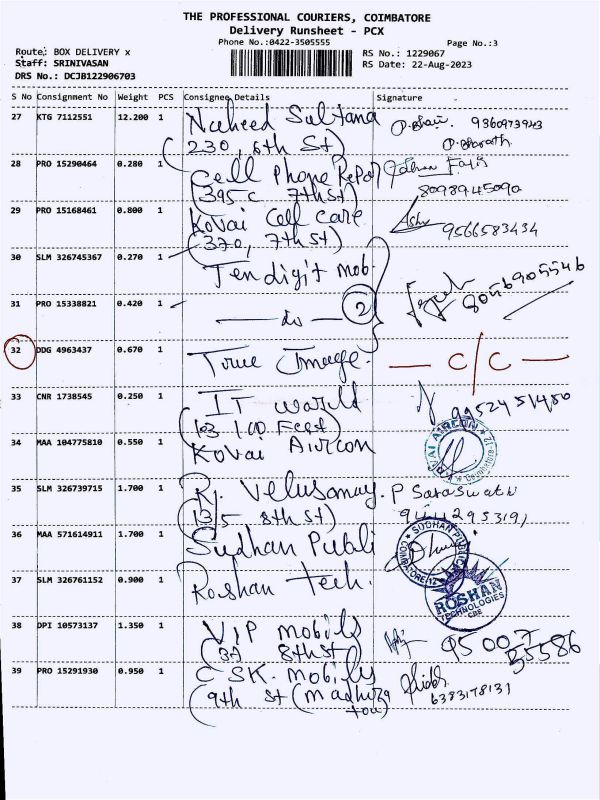 THE PROFESSIONAL COURIERS, COIMBATORE
Delivery Runsheet - PCX
Phone No.:0422-3505555
Page No.:3
Route: BOX DELIVERY x
Staff: SRINIVASAN
DRS No.: DCJB122906703
RS No.: 1229067
RS Date: 22-Aug-2023
S No Consignment No Weight PCS Consignee Details Signature
27 KTG 7112551 12.200 1 Naheed Sultana
(230, 6th St)
9360973943
P. Bharath
28 PRO 15290464 0.280 1 Cell Phone Repai
(395 c 7th St)
8098945090
29 PRO 15168461 0.800 1 Kovai Cell care
(370, 7th St)
9566583434
30 SLM 326745367 0.270 1 Ten digit mob.
31 PRO 15338821 0.420 1 — do — 2
8056905546
32 DDG 4963437 0.670 1 True Image. — C/C —
33 CNR 1738545 0.250 1 IT world
(103 100 Feet)
9952451480
34 MAA 104775810 0.550 1 Kovai Aircon
KOVAI AIRCON
35 SLM 326739715 1.700 1 Rj. Velusamay.
(13/5 8th St)
P Saraswathi
36 MAA 571614911 1.700 1 Sudhan Publi
SUDHAN PUBLIC
COIMBATORE-12
37 SLM 326761152 0.900 1 Roshan Tech.
ROSHAN
TECHNOLOGIES
CBE
38 DPI 10573137 1.350 1 VIP mobils
(37 8th St)
95007
55586
39 PRO 15291930 0.950 1 C SK. mobils
(9th St (madhura
6383178131